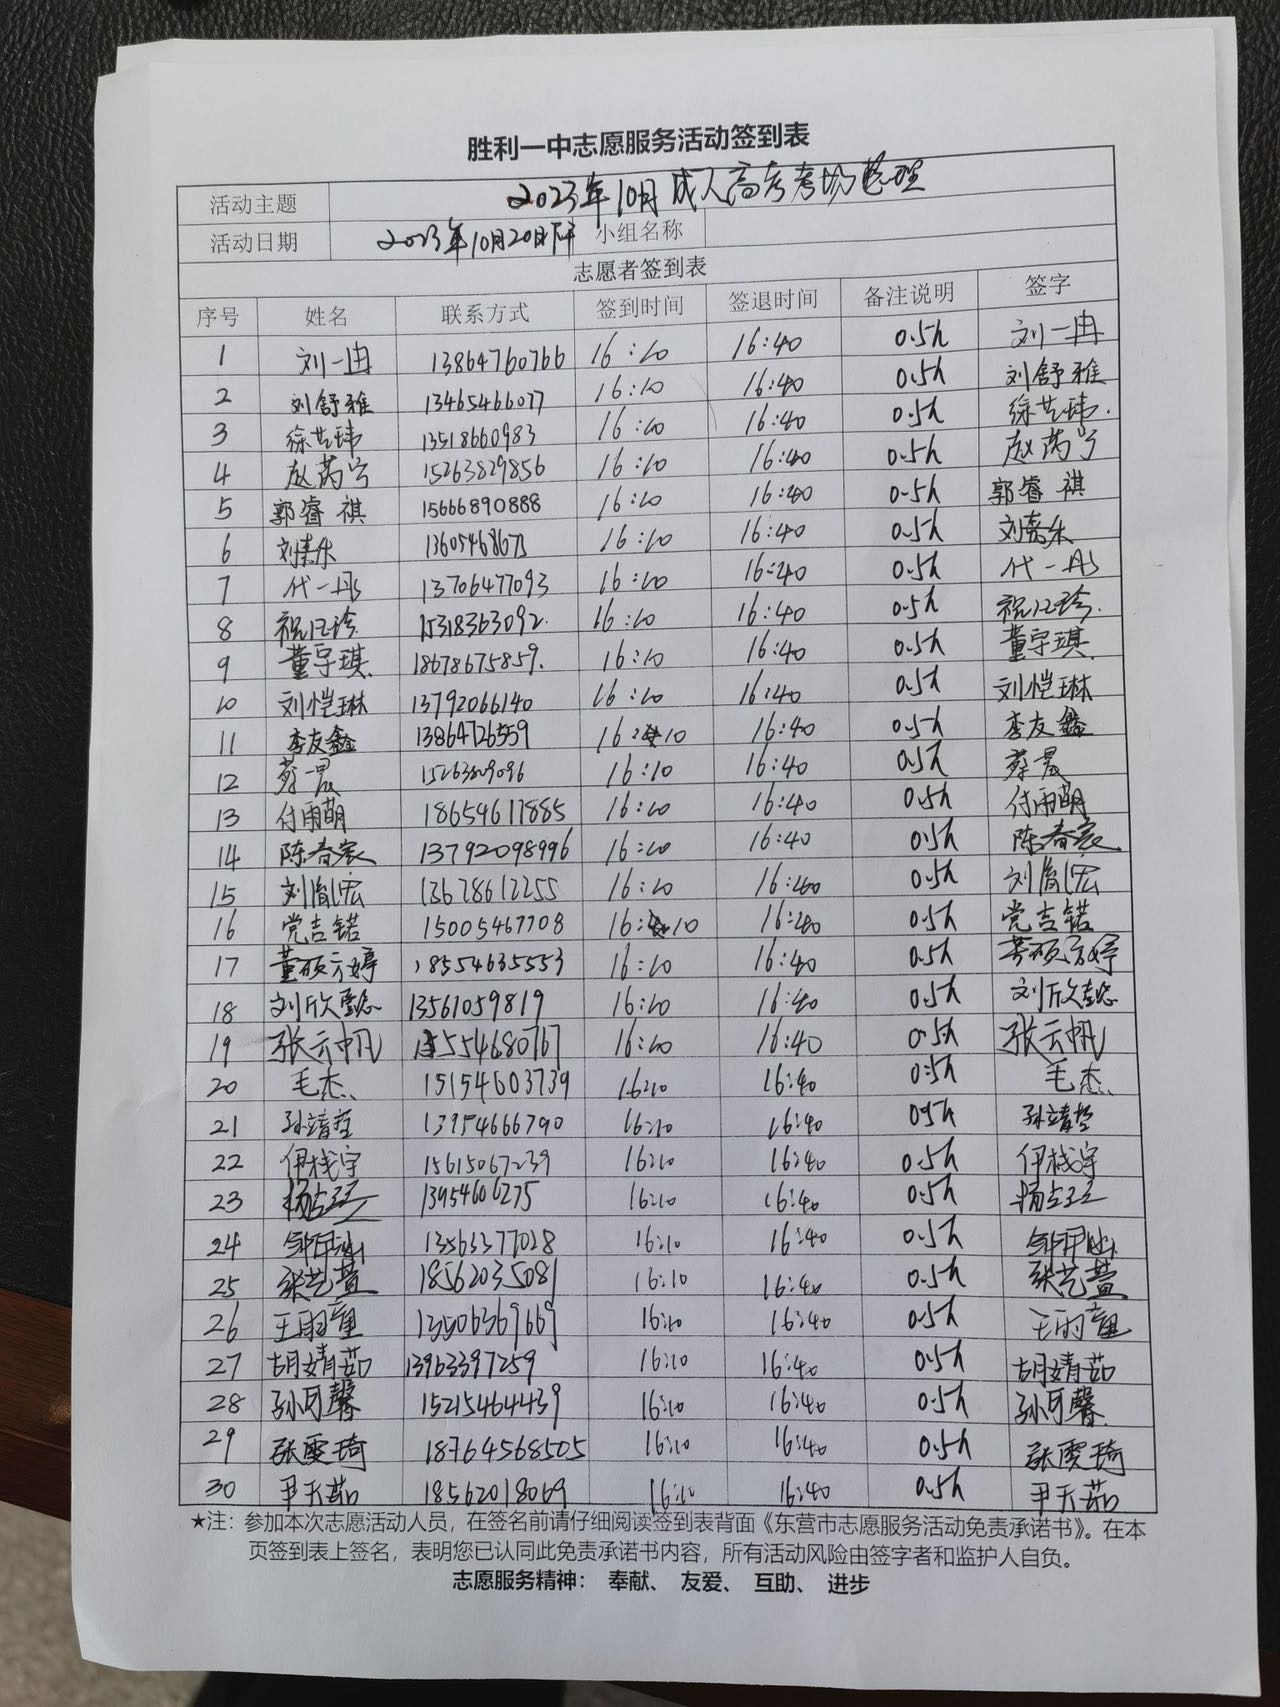 胜利一中志愿服务活动签到表
活动主题 2023年10月成人高考考场整理
活动日期 2023年10月20日下午 小组名称
志愿者签到表
序号 姓名 联系方式 签到时间 签退时间 备注说明 签字
1 刘一冉 13864760766 16:10 16:40 0.5h 刘一冉
2 刘舒雅 13465466077 16:10 16:40 0.5h 刘舒雅
3 徐艺玮 13518660983 16:10 16:40 0.5h 徐艺玮.
4 赵芮宁 15263829856 16:10 16:40 0.5h 赵芮宁
5 郭睿祺 15666890888 16:10 16:40 0.5h 郭睿祺
6 刘嘉乐 16:10 16:40 0.5h 刘嘉乐
7 代一彤 13706477093 16:10 16:40 0.5h 代一彤
8 15318363092. 16:10 16:40 0.5h
9 董宇琪 18678675859. 16:10 16:40 0.5h 董宇琪
10 刘恺琳 13792066140 16:10 16:40 0.5h 刘恺琳
11 李友鑫 13864726559 16:10 16:40 0.5h 李友鑫
12 蔡晟 15263809096 16:10 16:40 0.5h 蔡晟
13 付雨萌 18654617885 16:10 16:40 0.5h 付雨萌
14 陈春宸 13792098996 16:10 16:40 0.5h 陈春宸
15 刘胤宏 13678612255 16:10 16:40 0.5h 刘胤宏
16 党吉锘 15005467708 16:10 16:40 0.5h 党吉锘
17 董硕云婷 18554635553 16:10 16:40 0.5h 董硕云婷
18 刘欣懿 13561059819 16:10 16:40 0.5h 刘欣懿
19 张云帆 15554680767 16:10 16:40 0.5h 张云帆
20 毛杰 15154603739 16:10 16:40 0.5h 毛杰
21 孙靖哲 13954666790 16:10 16:40 0.5h 孙靖哲
22 伊栈宇 15615067239 16:10 16:40 0.5h 伊栈宇
23 13954606275 16:10 16:40 0.5h
24 13563377028 16:10 16:40 0.5h
25 张艺萱 18562035081 16:10 16:40 0.5h 张艺萱
26 王雨童 13506369669 16:10 16:40 0.5h 王雨童
27 胡婧茹 13963397259 16:10 16:40 0.5h 胡婧茹
28 孙可馨 15215464439 16:10 16:40 0.5h 孙可馨
29 张雯琦 18764568505 16:10 16:40 0.5h 张雯琦
30 尹天茹 18562018069 16:10 16:40 0.5h 尹天茹
★注：参加本次志愿活动人员，在签名前请仔细阅读签到表背面《东营市志愿服务活动免责承诺书》。在本
页签到表上签名，表明您已认同此免责承诺书内容，所有活动风险由签字者和监护人自负。
志愿服务精神： 奉献、 友爱、 互助、 进步